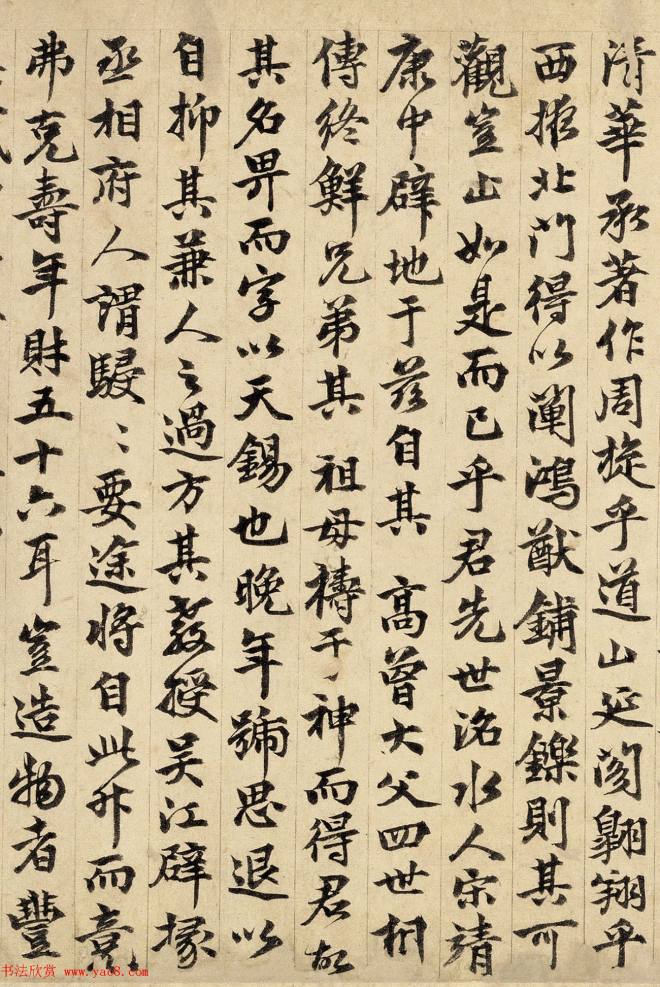 清華承著作周旋乎道山延閣翱翔乎
西掖北門得以闡鴻猷鋪景鑠則其可
觀豈止如是而已乎君先世洺水人宋靖
康中辟地于茲自其 高曾大父四世相
傳終鮮兄弟其 祖母禱于神而得君故
其名畀而字以天錫也晚年號思退以
自抑其兼人之過方其教授吳江辟掾
丞相府人謂駸〻要途將自此升而竟
弗克壽年財五十六耳豈造物者豐
书法欣赏 www.yac8.com